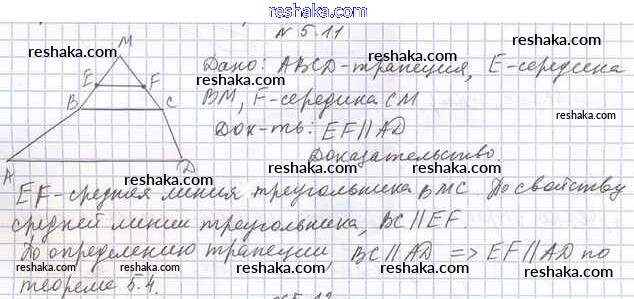 reshaka.com
N 5.11
M
reshaka.com reshaka.com reshaka.com
Дано: ABCD-трапеция, E-середина
E F
reshaka.com reshaka.com reshaka.com
BM, F-середина CM
B C
Док-ть: EF || AD
reshaka.com reshaka.com reshaka.com
Доказательство.
A D
reshaka.com reshaka.com reshaka.com
EF-средняя линия треугольника BMC. По свойству
reshaka.com reshaka.com reshaka.com
средней линии треугольника, BC || EF
По определению трапеции, BC || AD => EF || AD по
reshaka.com reshaka.com reshaka.com
теореме 5.4.
reshaka.com